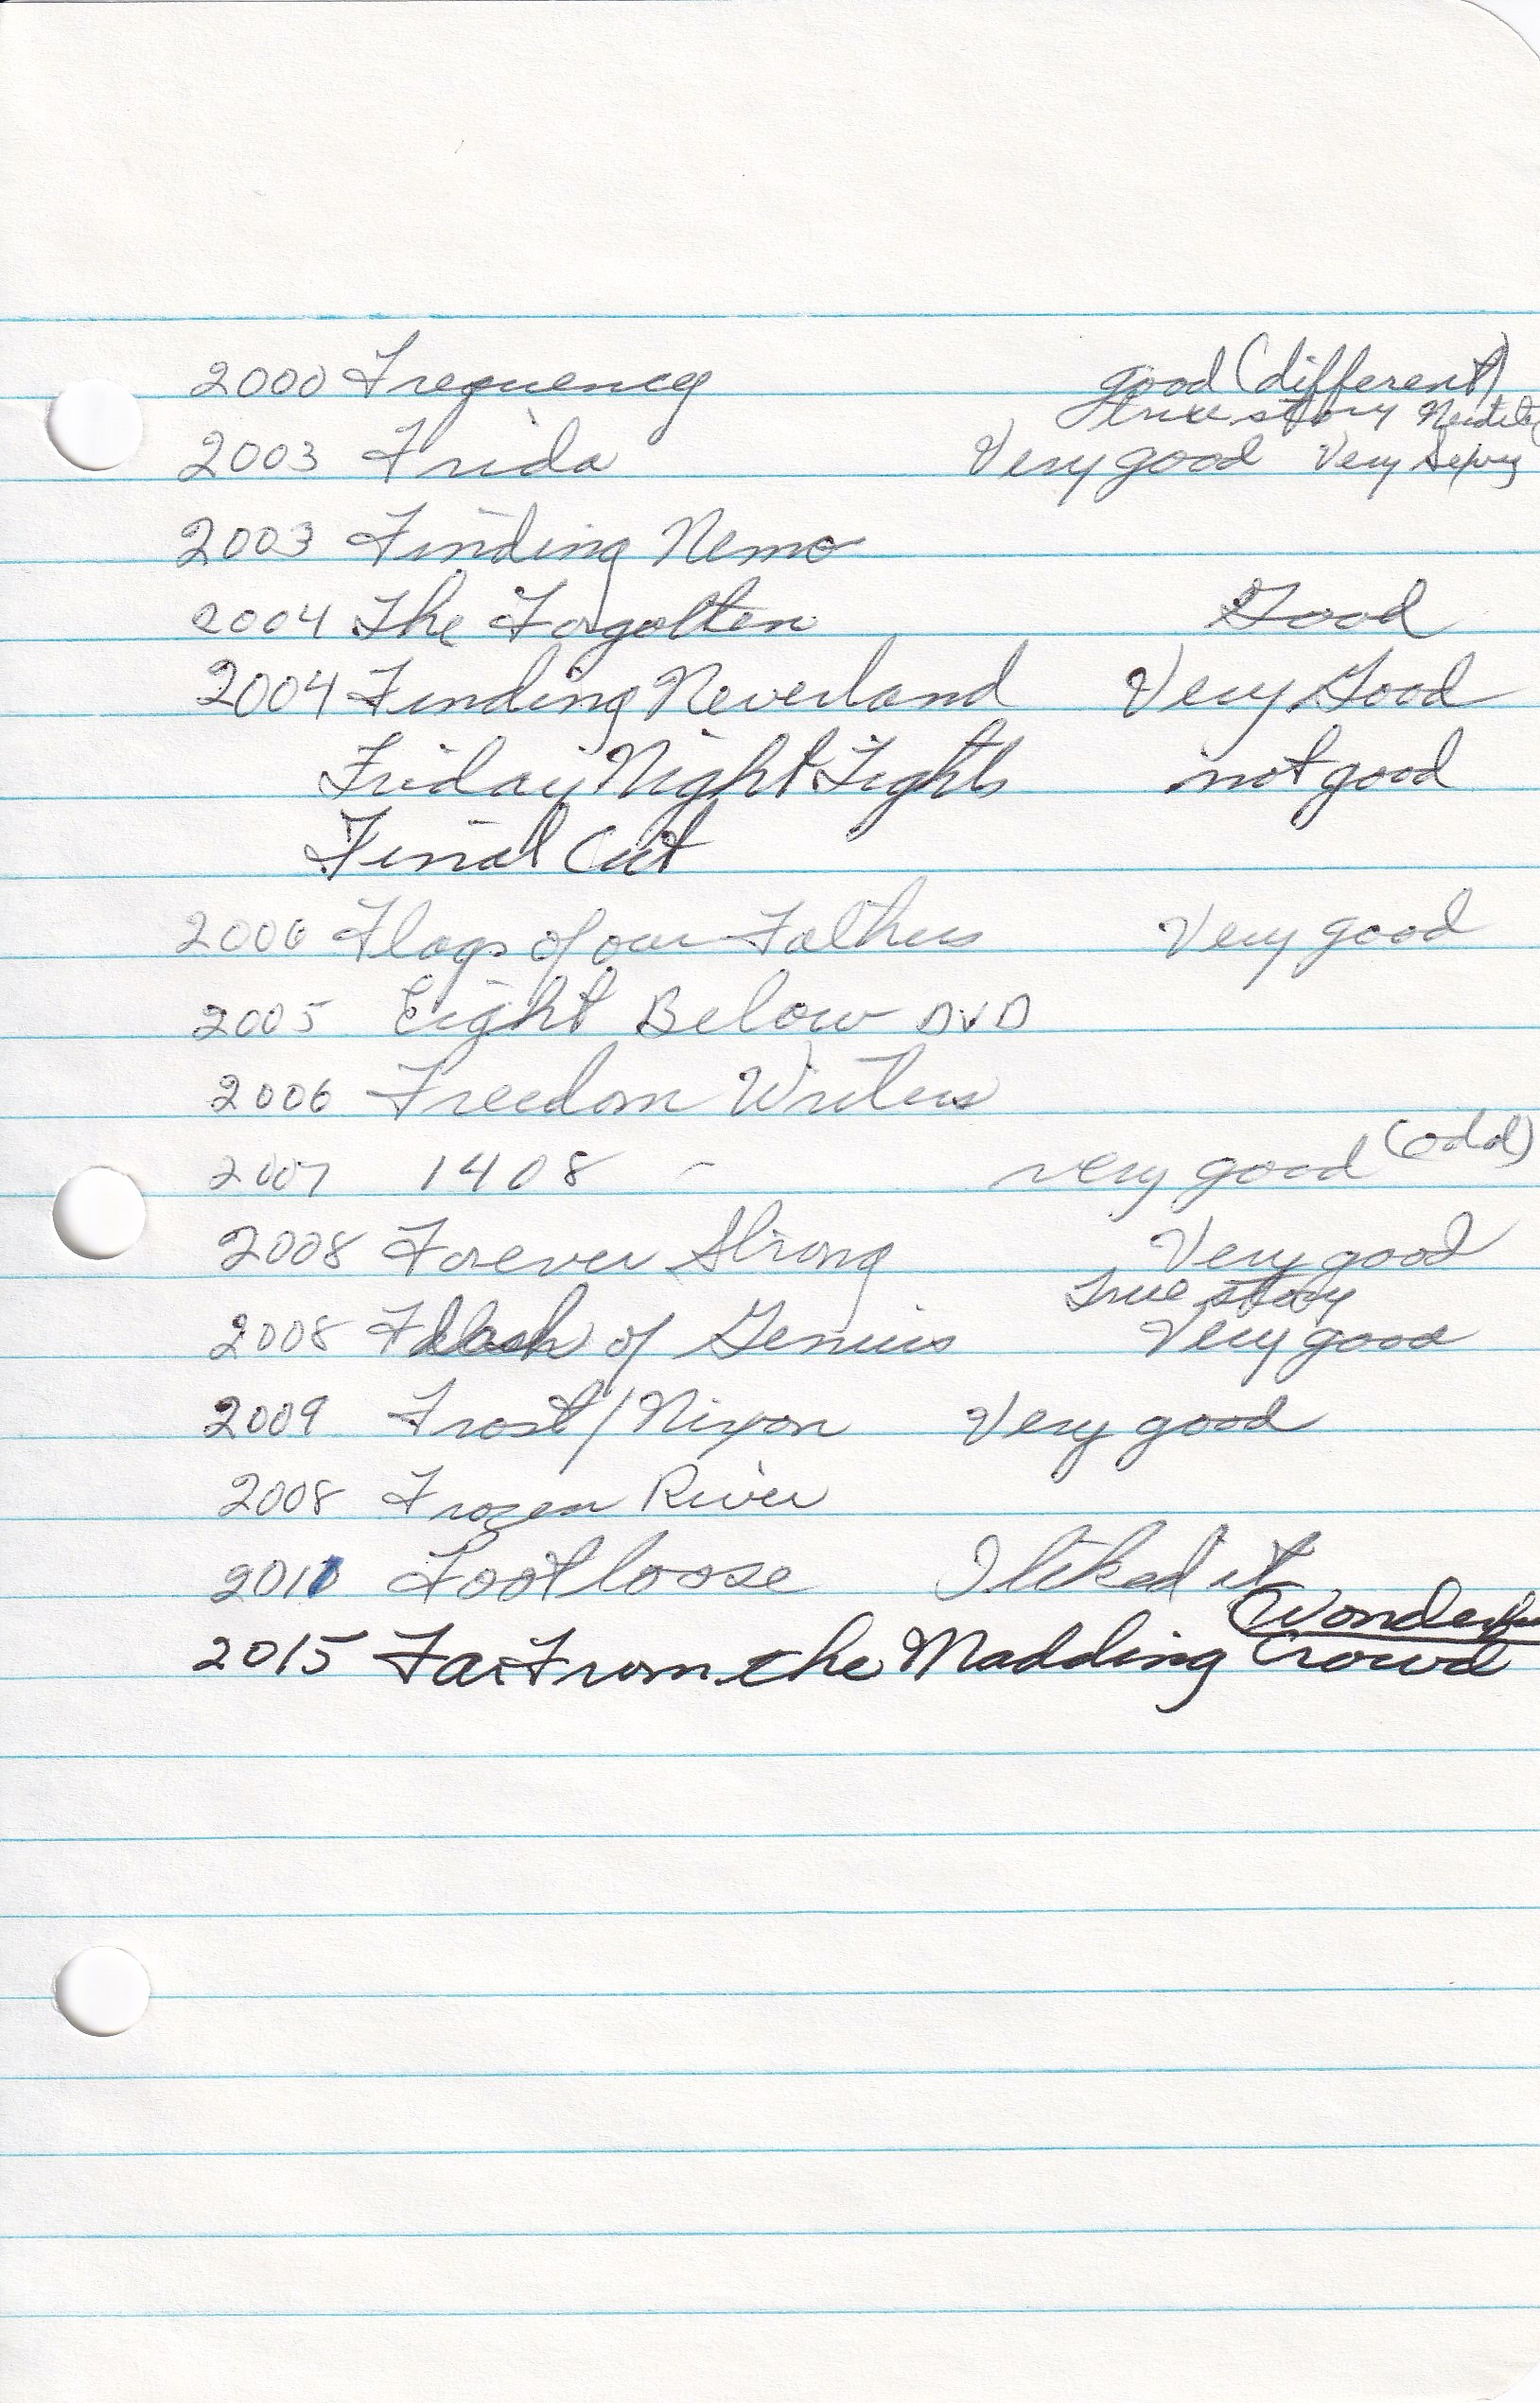 2000 Frequency good (different)
true story Nudity
2003 Frida Very good Very Sexy
2003 Finding Nemo
2004 The Forgotten Good
2004 Finding Neverland Very Good
Friday Night Lights not good
Final Cut
2006 Flags of our Fathers Very good
2005 Eight Below DVD
2006 Freedom Writers
2007 1408 - very good (odd)
2008 Forever Strong Very good
True story
2008 Flash of Genius Very good
2009 Frost/Nixon Very good
2008 Frozen River
2011 Footloose I liked it
Wonderful
2015 Far From the Madding Crowd